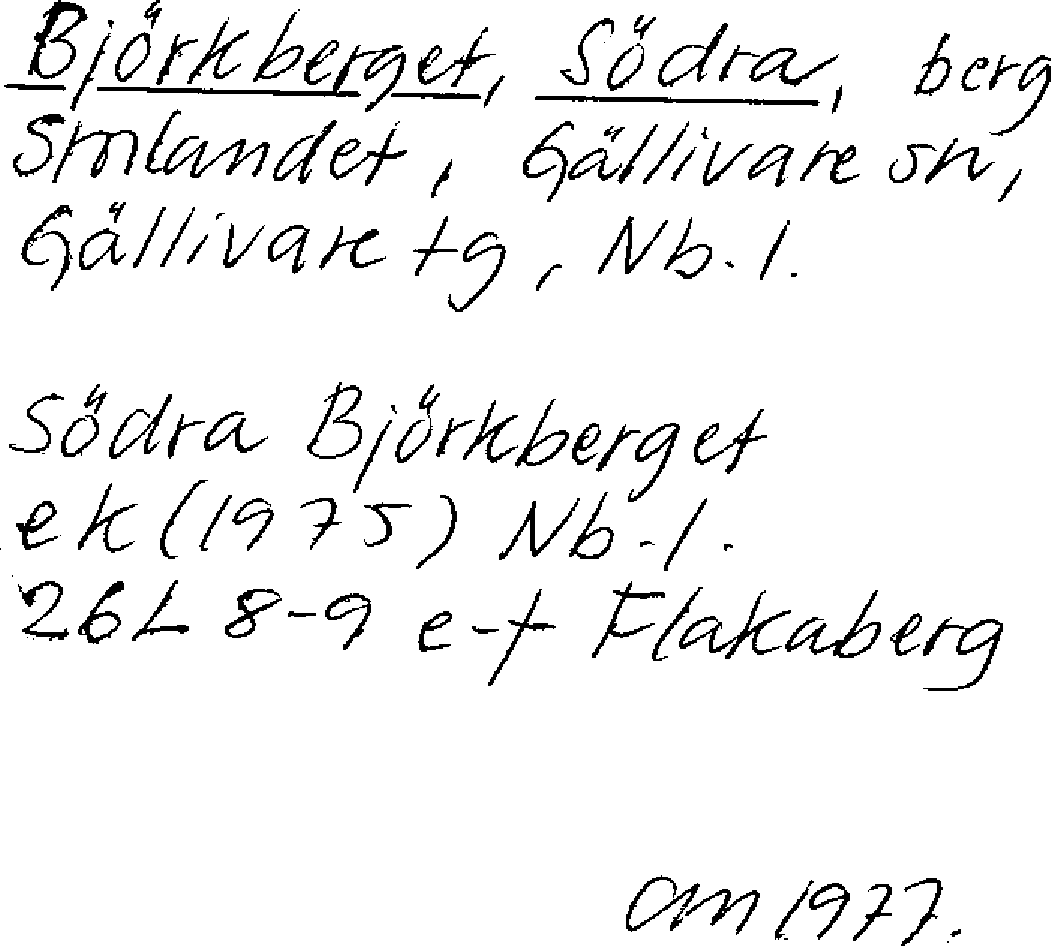 Björkberget, Södra, berg
Gällivare sn,
Gällivare tg, Nb. l.
Södra Björkberget
ek (1975) Nb. l.
26L 8-9 e-f Flakaberg
1977.